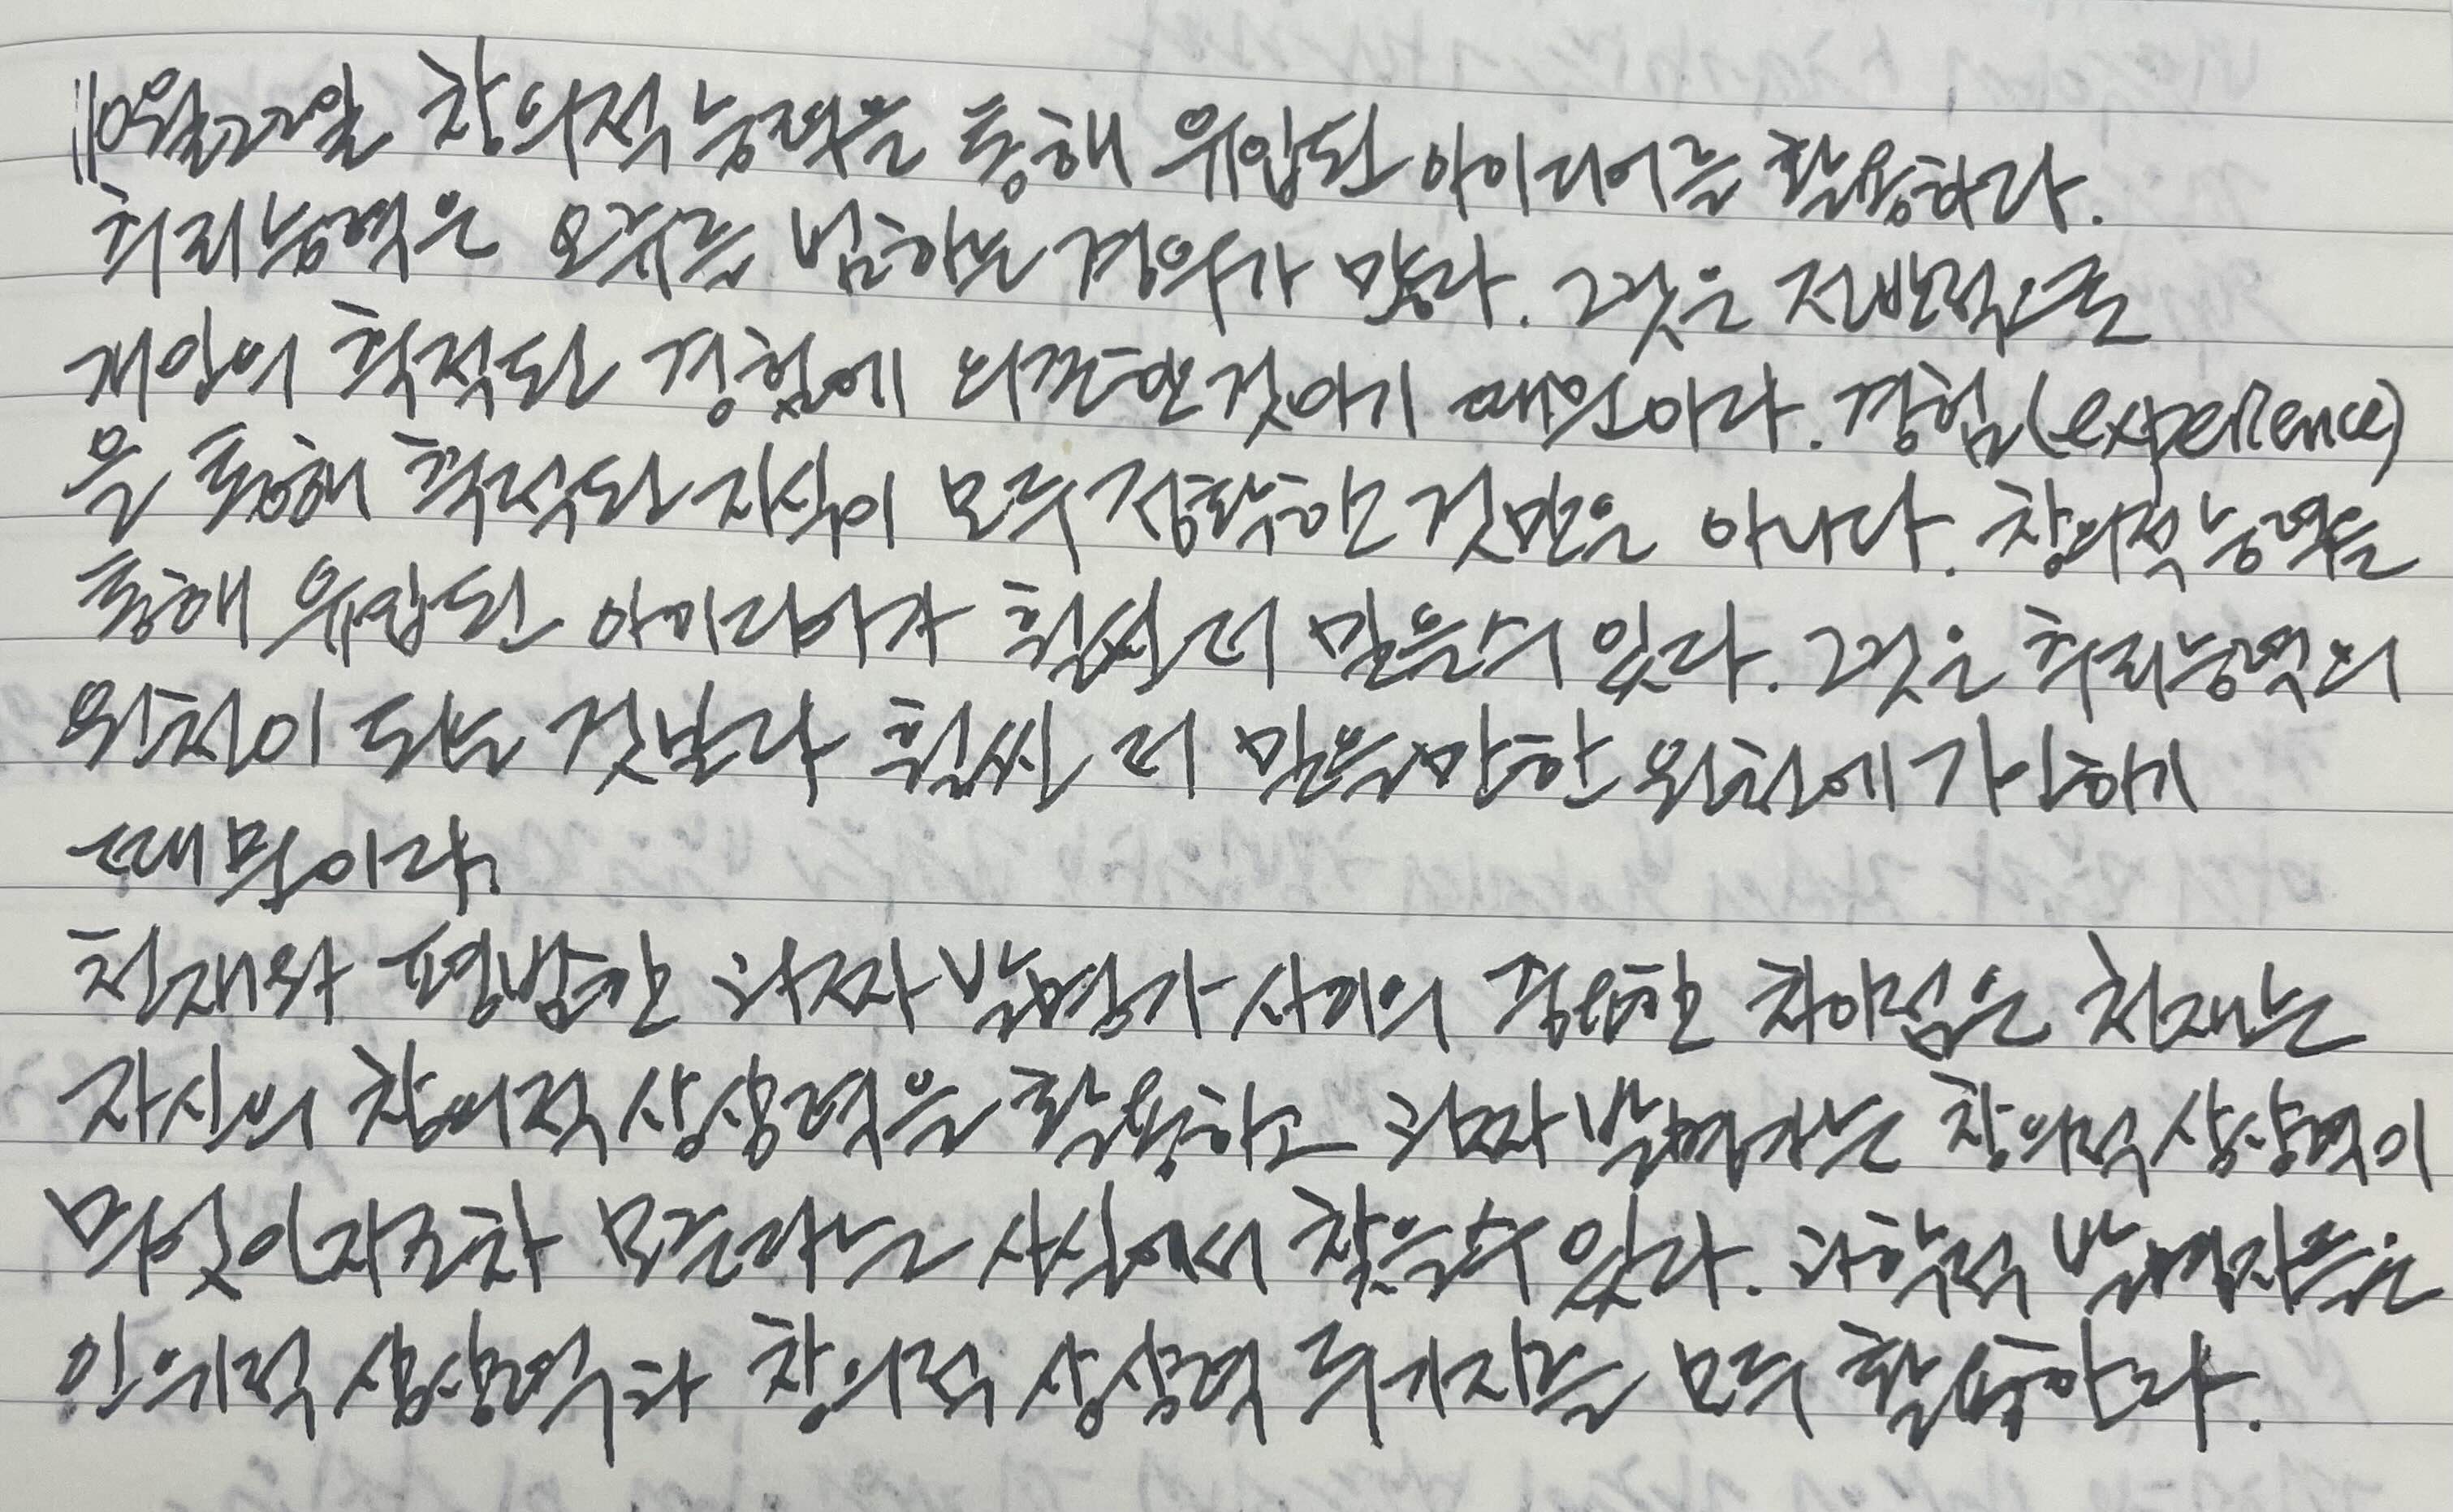 ||10월22일 창의적 능력을 통해 유입된 아이디어를 활용하라.
추리능력은 오류를 범하는 경우가 많다. 그것은 전반적으로
개인의 축적된 경험에 의존한 것이기 때문이다. 경험(experience)
을 통해 축적된 지식이 모두 정확한 것만은 아니다. 창의적 능력을
통해 유입된 아이디어가 훨씬 더 믿을 수 있다. 그것은 추리능력의
원천이 되는 것보다 훨씬 더 믿을만한 원천에 기인하기
때문이다.
천재와 평범한 괴짜 발명가 사이의 중요한 차이점은 천재는
자신의 창의적 상상력을 활용하고 괴짜 발명가는 창의적 상상력이
무엇인지조차 모른다는 사실에서 찾을 수 있다. 과학적 발명가들은
인위적 상상력과 창의적 상상력 두가지를 모두 활용한다.